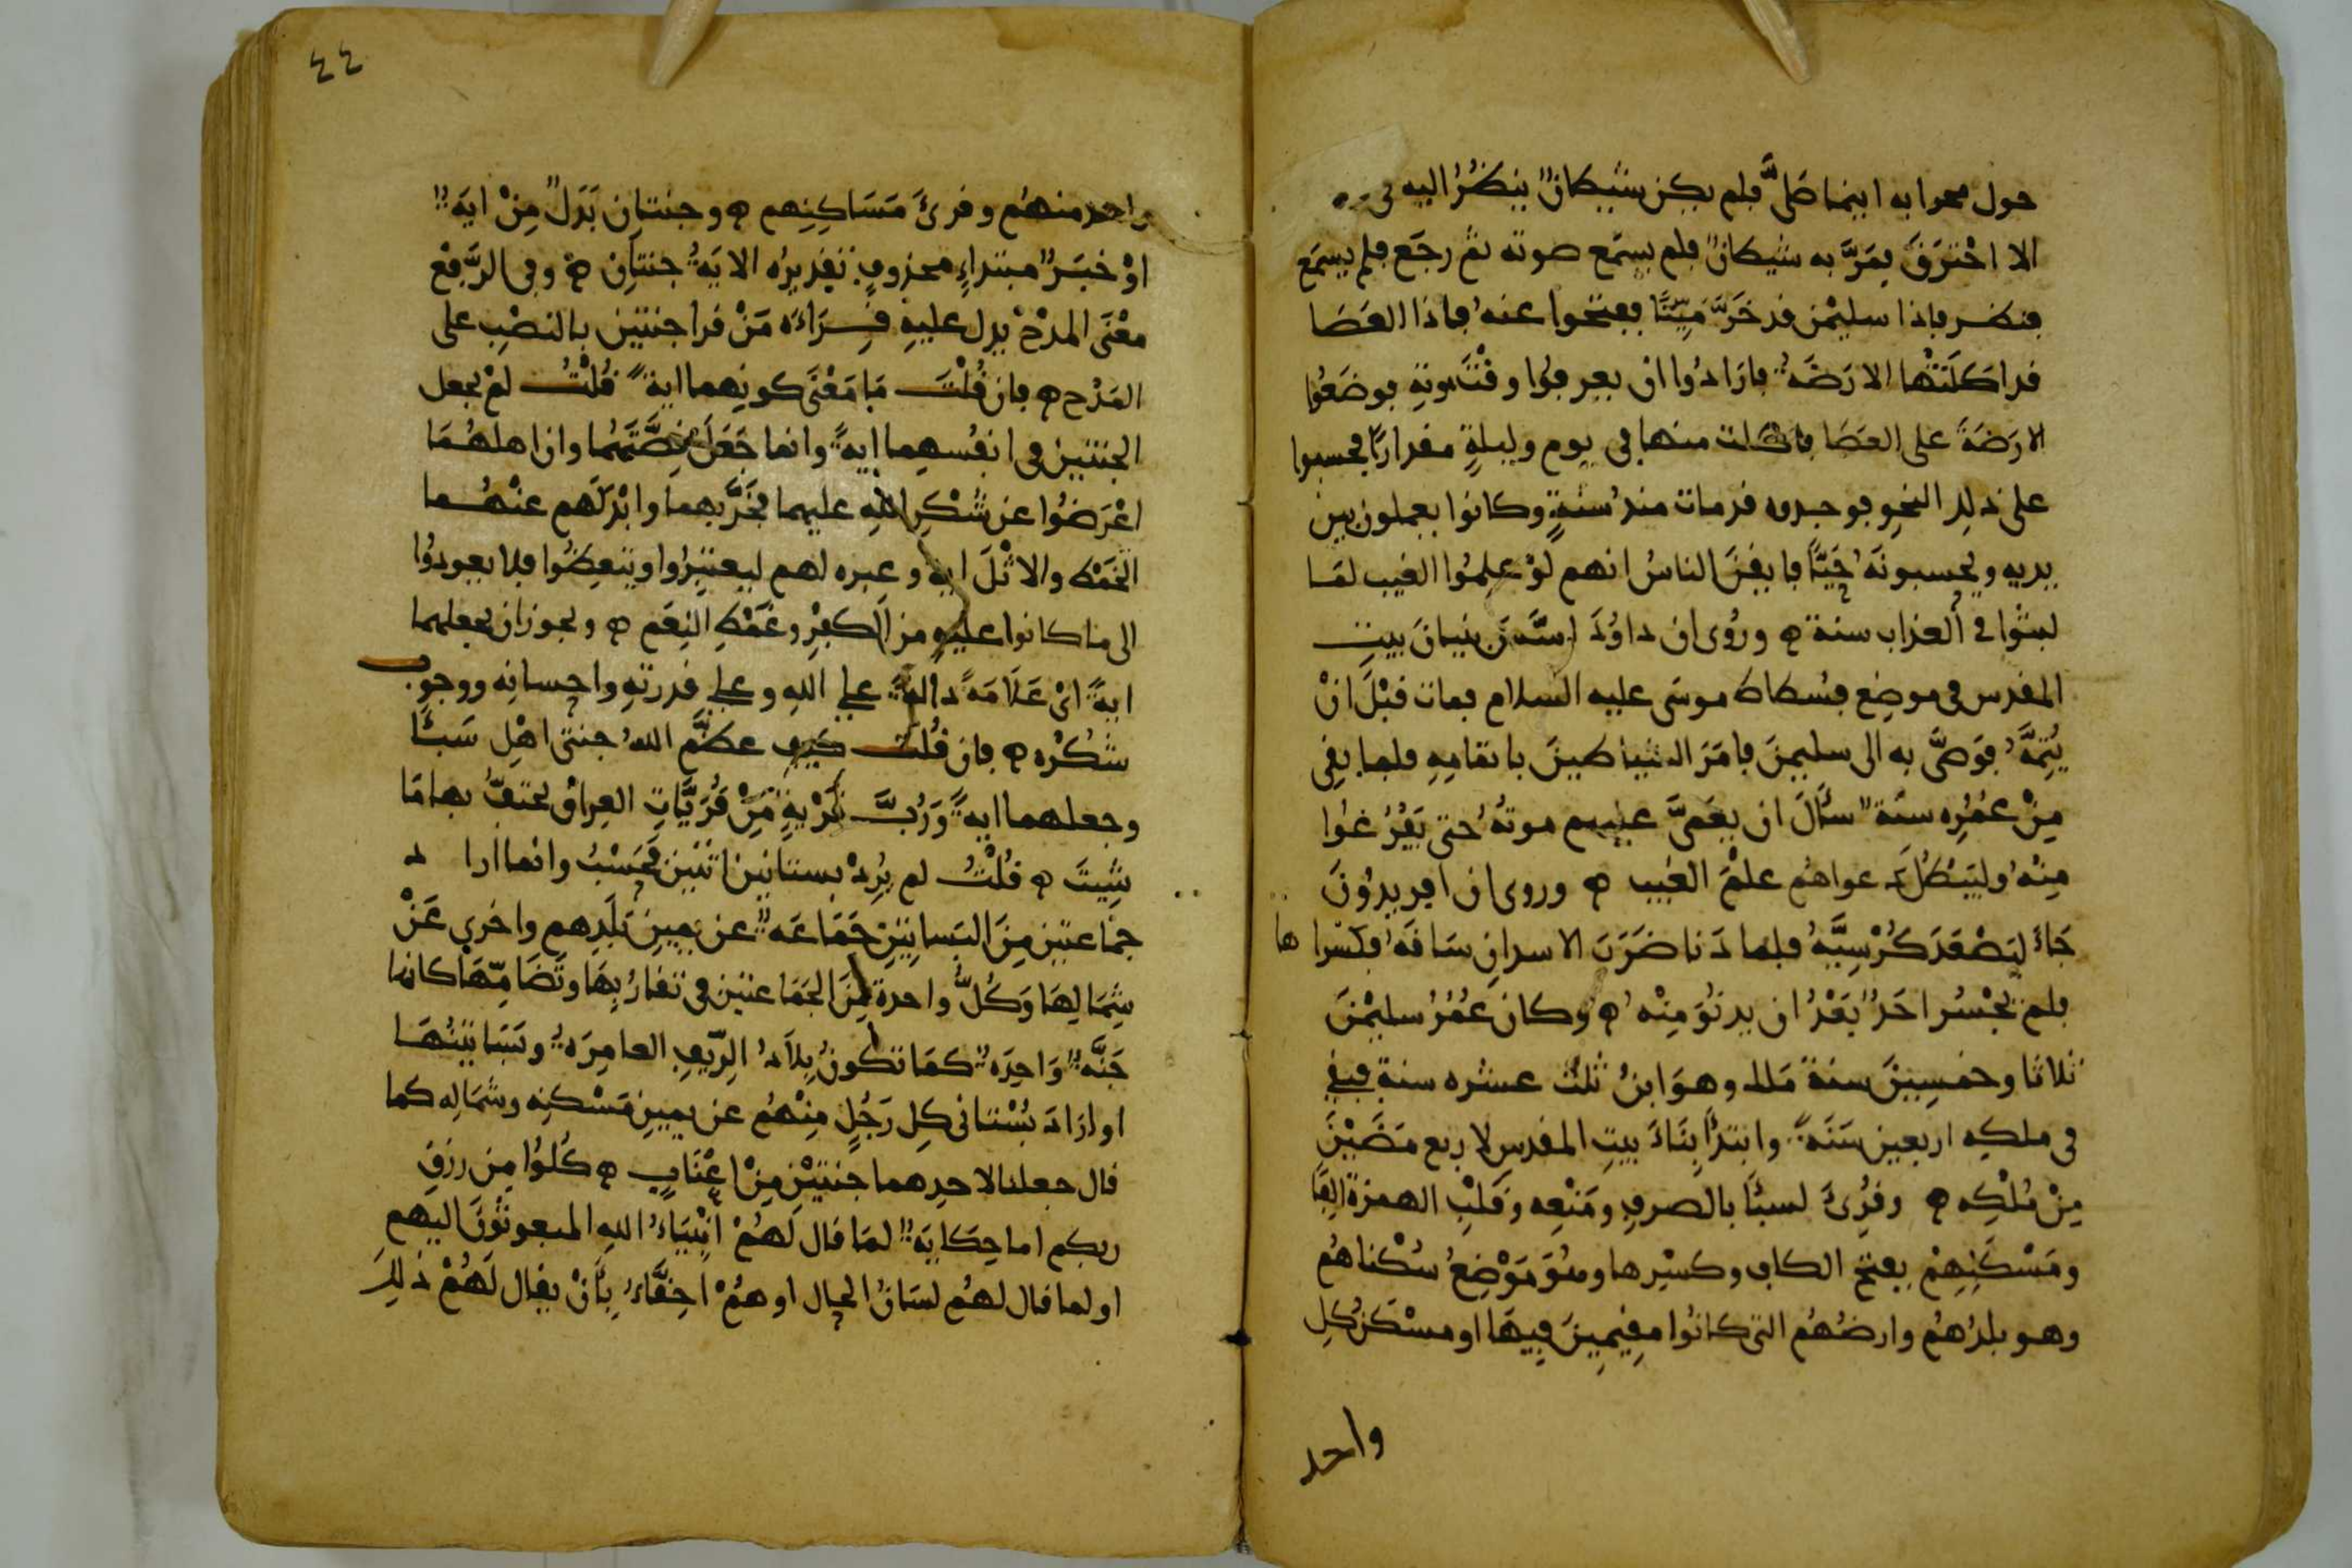 حول محرابه اينما صَلَّى فلم يكن شيطانٌ ينظُرُ اليه في
الا احْترَقَ فمَرَّ به شيطانٌ فلم يسمَع صوته ثم رجَع فلم يسمَع
فنظر فاذا سليمٰن قد خَرَّ مَيِّتًا ففتحوا عنهُ فاذا العَصَا
قد اكَلَتْها الارَضَةُ فارَادُوا ان يعرفوا وقْتَ موتهِ فوضَعُوا
الارَضَةَ على العَصَا فاكلت منها في يوم وليلةٍ مقدارًا فحسبوا
على ذلك النحوِ فوجدوه قد مات منذُ سَنةٍ وكانوا يعملون بين
يديه ويحسبونهُ حَيًّا فايقنَ الناسُ انهم لَوْ علِمُوا الغيب لمَا
لبثُوا في العذاب سنة ۞ ورُوى ان داوُدَ اسَّسَ بنيانَ بيتِ
المقدس في موضِع فسطاط موسَى عليه السلام فمات قبْلَ انْ
يُتِمَّهُ فوَصَّى به الى سليمٰنَ فامَرَ الشياطينَ باتمامِهِ فلما بقِى
مِنْ عُمُرِه سنَةٌ سأَلَ ان يعَمِّىَ عليهم موتَهُ حتى يَفْرُغوا
مِنْهُ وليَبْطُلَ دعواهُم علْمَ الغيب ۞ وروى ان افريدُونَ
جَاءَ ليَصْعَدَ كُرْسِيَّهُ فلما دَنا ضَرَبَ الاسدانِ سَاقَهُ فكسَراها
فلم يجْسُر احَدٌ بَعْدُ ان يدنُوَ مِنْهُ ۞ وكان عُمُرُ سليمٰنَ
ثلاثا وخمسِينَ سنةً مَلك وهوَ ابنُ ثلث عشره سنةٍ فبقِىَ
في ملكِه اربعين سَنَةً وابتدَأَ بِنَاءَ بيتِ المقدس لاربع مَضَيْنَ
مِنْ مُلْكِه ۞ وقُرِئَ لسبَأ بالصرفِ ومَنْعِه وقَلْبِ الهمزة الِفًا
ومَسْكَنِهِمْ بفتح الكاف وكسْرِها وهُوَ مَوْضِعُ سُكْناهُم
وهو بلدُهُم وارضُهُم التى كانُوا مقِيمِينَ فِيهَا او مسْكَن كلِ
واحد
٤٤
واحد منهُم وقرئَ مَسَاكِنِهم ۞ وجنتانِ بَدَلٌ مِنْ ايَةٌ
اوْ خبَرُ مبتداءٍ محذوفٍ تقديرُه الايَةُ جنتانِ ۞ وفي الرَّفعِ
معْنَى المدْحْ يدل عليهِ قِرَاءَةُ مَنْ قرا جنتين بالنصْبِ على
المَدْح ۞ فان قُلْتَ مَا مَعْنَى كونِهما ايةً قُلْتُ لمْ يجعل
الجنتين في انفُسِهِما ايةً وانما جَعَلَ قِصَّتَهُما وان اهلهُمَا
اعْرَضُوا عن شكْرِ اللهِ عليهما فخَرَّبهما وابْدَلَهم عنْهُما
الخمْط والاثْلَ ايه وعِبره لهم ليعتبِرُوا ويتعِظُوا فلا يعودُوا
الى ما كانوا عليهِ من الكفْرِ وغَمْطِ النِعَم ۞ ويجوز ان يجعلهما
ايةً اىْ عَلَامَةً دالةً على اللهِ وعلى قدرتهِ واحسانِه ووجوب
شكْرُه ۞ فان قُلْتَ كيف عظَّم اللهُ جنتى اهْلِ سَبَأ
وجعلهما ايةً وَرُبَّ قَرْيةٍ مِنْ قُرَيَّاتِ العِراق يحتفُّ بها مَا
شِيتَ ۞ قُلْتُ لم يُرِدْ بستانين اثنين فحَسْبُ وانما ارا د
جمَاعتين مِنَ البَساتِينِ جَمَاعَةٌ عن يمينِ بَلَدِهم واخرى عَنْ
شِمَالِهَا وَكُلُّ واحدة مِنَ الجَمَاعتين في تقارُبِهَا وتَضَامِّهَا كانها
جَنَّةٌ وَاحِدَةٌ كمَا تكونُ بِلَادُ الرِّيفِ العامِرَةُ وبَسَاتِينُهَا
او ارَادَ بُسْتانى كلِ رَجُلٍ مِنْهُم عن يمينِ مَسْكنِه وشمَالِه كما
قال جعلنا لاحدِهما جَنتَيْنِ مِنْ اعْنَابٍ ۞ كُلُوا مِن رزقِ
ربكم اما حِكَايَةٌ لمَا قال لَهُمْ انْبِيَاءُ اللهِ المبعوثُونَ اليهم
او لما قال لهُم لسَانُ الحال او هُمْ احِقَّاءُ بِأَنْ يقال لَهُمْ ذلِكَ